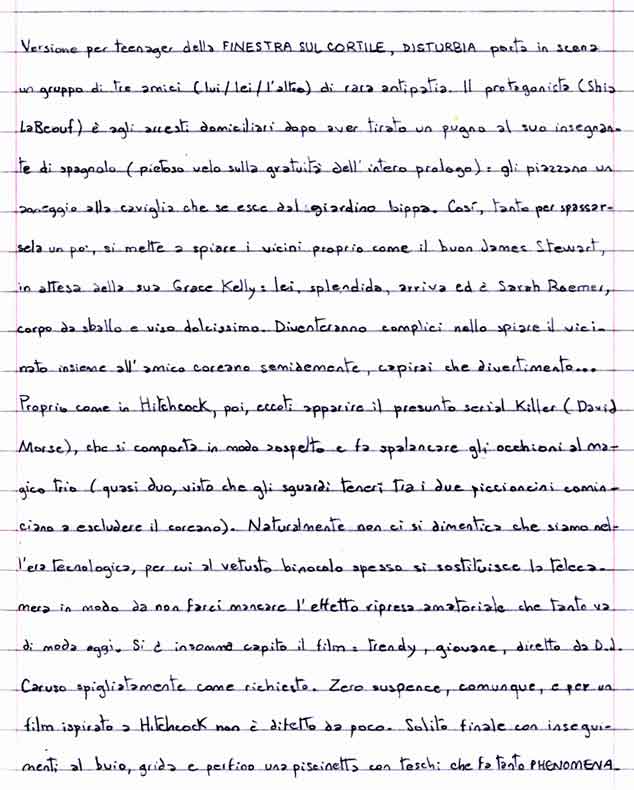 Versione per teenager della FINESTRA SUL CORTILE, DISTURBIA porta in scena
un gruppo di tre amici (lui/lei/l'altro) di rara antipatia. Il protagonista (Shia
LaBeouf) è agli arresti domiciliari dopo aver tirato un pugno al suo insegnan-
te di spagnolo (pietoso velo sulla gratuità dell'intero prologo): gli piazzano un
aneggio alla caviglia che se esce dal giardino bippa. Così, tanto per spassar-
sela un po', si mette a spiare i vicini proprio come il buon James Stewart,
in attesa della sua Grace Kelly: lei, splendida, arriva ed è Sarah Roemer,
corpo da sballo e viso dolcissimo. Diventeranno complici nello spiare il vici-
nato insieme all'amico coreano semidemente, capirai che divertimento...
Proprio come in Hitchcock, poi, eccoti apparire il presunto serial killer (David
Morse), che si comporta in modo sospetto e fa spalancare gli occhioni al ma-
gico trio (quasi duo, visto che gli sguardi teneri tra i due piccioncini comin-
ciano a escludere il coreano). Naturalmente non ci si dimentica che siamo nel-
l'era tecnologica, per cui al vetusto binocolo spesso si sostituisce la teleca-
mera in modo da non farci mancare l'effetto ripresa amatoriale che tanto va
di moda oggi. Si è insomma capito il film: trendy, giovane, diretto da D.J.
Caruso spigliatamente come richiesto. Zero suspence, comunque, e per un
film ispirato a Hitchcock non è difetto da poco. Solito finale con insegui-
menti al buio, grida e perfino una piscinetta con teschi che fa tanto PHENOMENA.